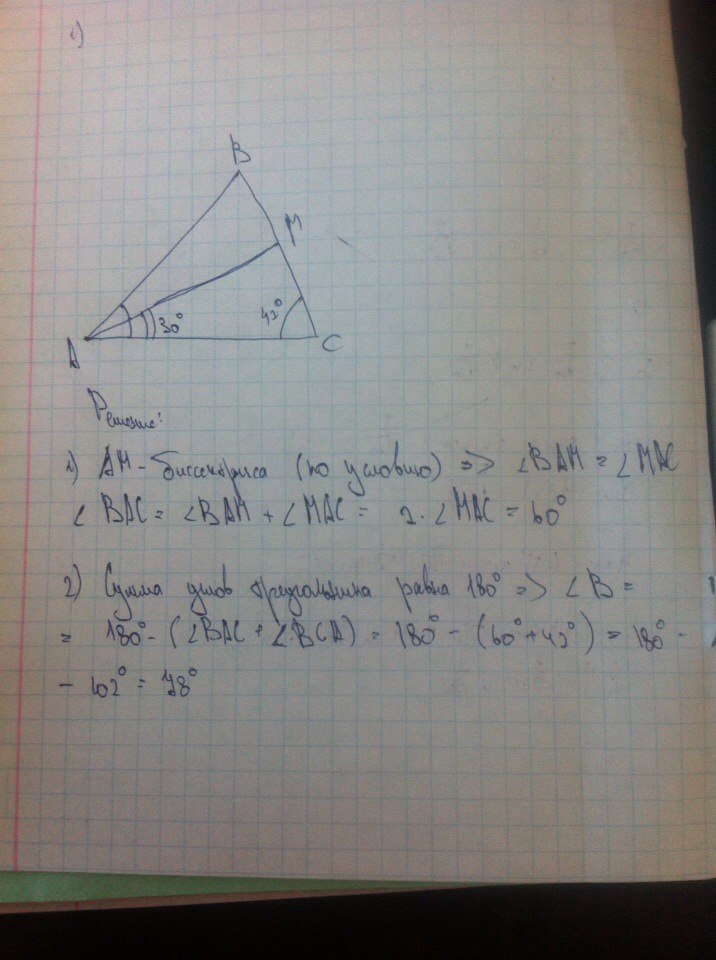 1)
B
M
30°
42°
A
C
Решение:
1) AM - биссектриса (по условию) => ∠BAM = ∠MAC
∠BAC = ∠BAM + ∠MAC = 2·∠MAC = 60°
2) Сумма углов треугольника равна 180° => ∠B =
= 180° - (∠BAC + ∠BCA) = 180° - (60° + 42°) = 180° -
- 102° = 78°